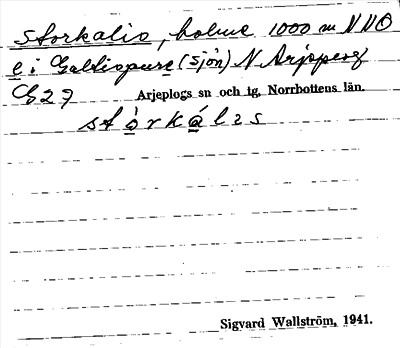 Storkalis, holme 1000 m NNO
e i Galtispure (sjön) N Arjepeog
G27 Arjeplogs sn och tg, Norrbottens län.
stòrkáles
Sigvard Wallström, 1941.